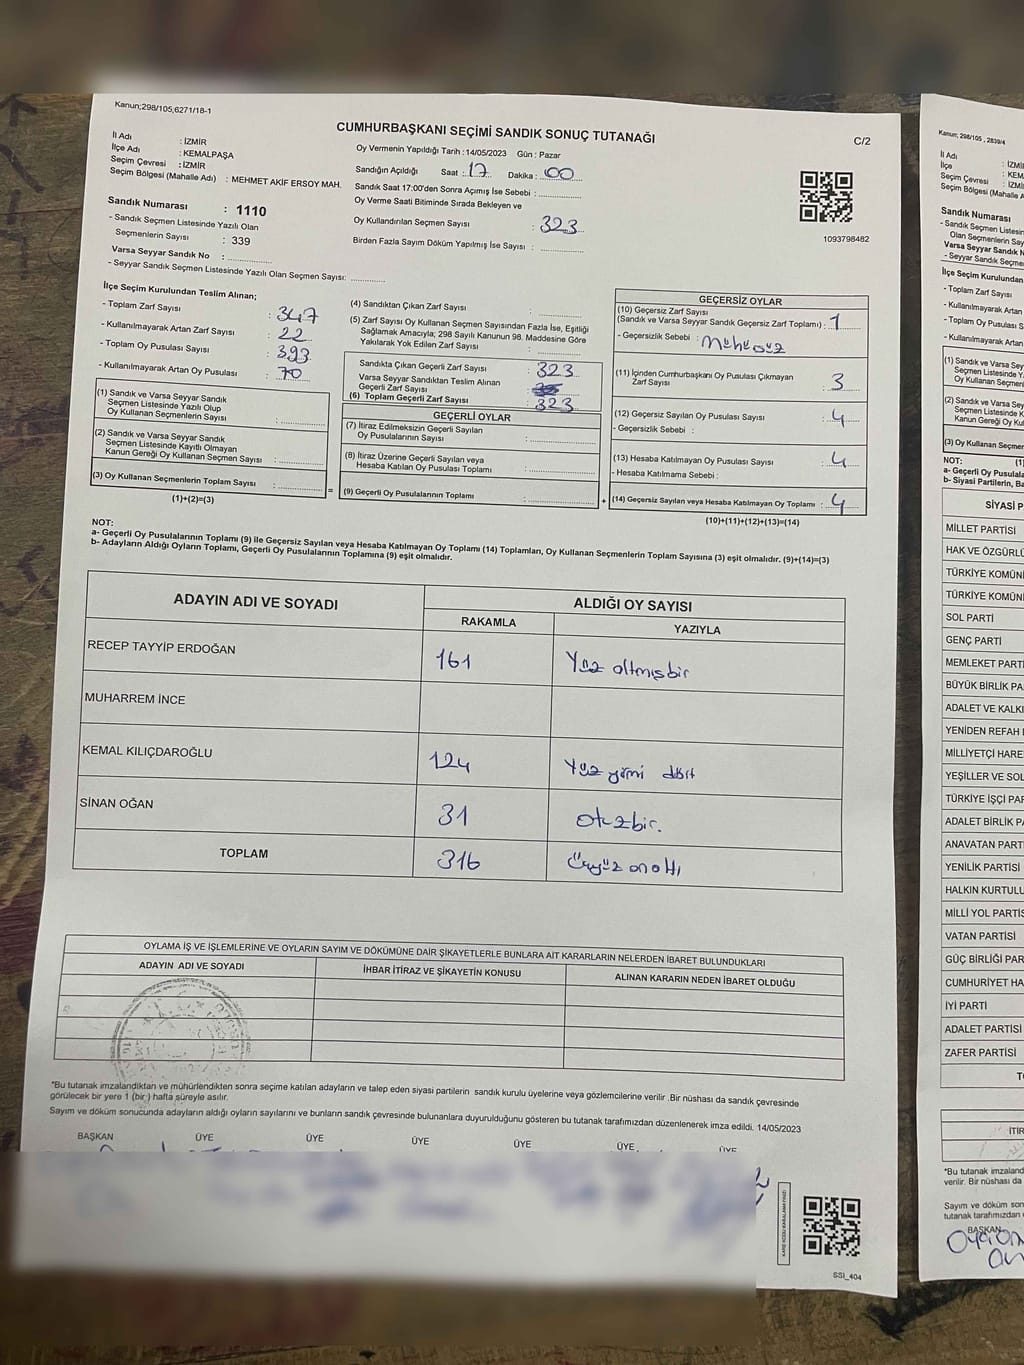 Kanun;298/105,6271/18-1
CUMHURBAŞKANI SEÇİMİ SANDIK SONUÇ TUTANAĞI
C/2
İl Adı : İZMİR
İlçe Adı : KEMALPAŞA
Seçim Çevresi : İZMİR
Seçim Bölgesi (Mahalle Adı) : MEHMET AKİF ERSOY MAH.
Sandık Numarası : 1110
- Sandık Seçmen Listesinde Yazılı Olan
Seçmenlerin Sayısı : 339
Varsa Seyyar Sandık No :
- Seyyar Sandık Seçmen Listesinde Yazılı Olan Seçmen Sayısı:
Oy Vermenin Yapıldığı Tarih :14/05/2023 Gün : Pazar
Sandığın Açıldığı Saat : 17 Dakika : 00
Sandık Saat 17:00'den Sonra Açımış İse Sebebi :
Oy Verme Saati Bitiminde Sırada Bekleyen ve
Oy Kullandırılan Seçmen Sayısı : 323
Birden Fazla Sayım Döküm Yapılmış İse Sayısı :
1093798482
İlçe Seçim Kurulundan Teslim Alınan;
- Toplam Zarf Sayısı : 347
- Kullanılmayarak Artan Zarf Sayısı : 22
- Toplam Oy Pusulası Sayısı : 393
- Kullanılmayarak Artan Oy Pusulası : 70
(1) Sandık ve Varsa Seyyar Sandık
Seçmen Listesinde Yazılı Olup
Oy Kullanan Seçmenlerin Sayısı :
(2) Sandık ve Varsa Seyyar Sandık
Seçmen Listesinde Kayıtlı Olmayan
Kanun Gereği Oy Kullanan Seçmen Sayısı :
(3) Oy Kullanan Seçmenlerin Toplam Sayısı :
(1)+(2)=(3)
(4) Sandıktan Çıkan Zarf Sayısı :
(5) Zarf Sayısı Oy Kullanan Seçmen Sayısından Fazla İse, Eşitliği
Sağlamak Amacıyla; 298 Sayılı Kanunun 98. Maddesine Göre
Yakılarak Yok Edilen Zarf Sayısı :
Sandıkta Çıkan Geçerli Zarf Sayısı : 323
Varsa Seyyar Sandıktan Teslim Alınan
Geçerli Zarf Sayısı :
(6) Toplam Geçerli Zarf Sayısı : 323
GEÇERLİ OYLAR
(7) İtiraz Edilmeksizin Geçerli Sayılan
Oy Pusulalarının Sayısı :
(8) İtiraz Üzerine Geçerli Sayılan veya
Hesaba Katılan Oy Pusulası Toplamı :
= (9) Geçerli Oy Pusulalarının Toplamı :
GEÇERSİZ OYLAR
(10) Geçersiz Zarf Sayısı
(Sandık ve Varsa Seyyar Sandık Geçersiz Zarf Toplamı) : 1
- Geçersizlik Sebebi : Mühürsüz
(11) İçinden Cumhurbaşkanı Oy Pusulası Çıkmayan
Zarf Sayısı : 3
(12) Geçersiz Sayılan Oy Pusulası Sayısı : 4
- Geçersizlik Sebebi :
(13) Hesaba Katılmayan Oy Pusulası Sayısı : 4
- Hesaba Katılmama Sebebi :
+ (14) Geçersiz Sayılan veya Hesaba Katılmayan Oy Toplamı : 4
(10)+(11)+(12)+(13)=(14)
NOT:
a- Geçerli Oy Pusulalarının Toplamı (9) ile Geçersiz Sayılan veya Hesaba Katılmayan Oy Toplamı (14) Toplamları, Oy Kullanan Seçmenlerin Toplam Sayısına (3) eşit olmalıdır. (9)+(14)=(3)
b- Adayların Aldığı Oyların Toplamı, Geçerli Oy Pusulalarının Toplamına (9) eşit olmalıdır.
ADAYIN ADI VE SOYADI
ALDIĞI OY SAYISI
RAKAMLA YAZIYLA
RECEP TAYYİP ERDOĞAN 161 Yüz altmışbir
MUHARREM İNCE
KEMAL KILIÇDAROĞLU 124 Yüz yirmi dört
SİNAN OĞAN 31 otuzbir.
TOPLAM 316 Üçyüz onaltı
OYLAMA İŞ VE İŞLEMLERİNE VE OYLARIN SAYIM VE DÖKÜMÜNE DAİR ŞİKAYETLERLE BUNLARA AİT KARARLARIN NELERDEN İBARET BULUNDUKLARI
ADAYIN ADI VE SOYADI
İHBAR İTİRAZ VE ŞİKAYETİN KONUSU
ALINAN KARARIN NEDEN İBARET OLDUĞU
*Bu tutanak imzalandıktan ve mühürlendikten sonra seçime katılan adayların ve talep eden siyasi partilerin sandık kurulu üyelerine veya gözlemcilerine verilir .Bir nüshası da sandık çevresinde
görülecek bir yere 1 (bir ) hafta süreyle asılır.
Sayım ve döküm sonucunda adayların aldığı oyların sayılarını ve bunların sandık çevresinde bulunanlara duyurulduğunu gösteren bu tutanak tarafımızdan düzenlenerek imza edildi. 14/05/2023
BAŞKAN ÜYE ÜYE ÜYE ÜYE ÜYE ÜYE
SSI_404
Kanun; 298/105 , 2839/4
İl Adı : İZMİ
İlçe Adı : KEM
Seçim Çevresi : İZMİ
Seçim Bölgesi (Mahalle Adı)
Sandık Numarası
- Sandık Seçmen Listesin
Olan Seçmenlerin Say
Varsa Seyyar Sandık N
- Seyyar Sandık Seçme
İlçe Seçim Kurulundan
- Toplam Zarf Sayısı
- Kullanılmayarak Artan
- Toplam Oy Pusulası S
- Kullanılmayarak Artan
(1) Sandık ve Varsa Sey
Seçmen Listesinde Ya
Oy Kullanan Seçmenl
(2) Sandık ve Varsa Sey
Seçmen Listesinde Ka
Kanun Gereği Oy Ku
(3) Oy Kullanan Seçmen
NOT: (1)
a- Geçerli Oy Pusulala
b- Siyasi Partilerin, Ba
SİYASİ P
MİLLET PARTİSİ
HAK VE ÖZGÜRLÜ
TÜRKİYE KOMÜNİ
TÜRKİYE KOMÜNİ
SOL PARTİ
GENÇ PARTİ
MEMLEKET PARTİ
BÜYÜK BİRLİK PA
ADALET VE KALKI
YENİDEN REFAH
MİLLİYETÇİ HARE
YEŞİLLER VE SOL
TÜRKİYE İŞÇİ PAR
ADALET BİRLİK PA
ANAVATAN PARTİ
YENİLİK PARTİSİ
HALKIN KURTULU
MİLLİ YOL PARTİS
VATAN PARTİSİ
GÜÇ BİRLİĞİ PAR
CUMHURİYET HA
İYİ PARTİ
ADALET PARTİSİ
ZAFER PARTİSİ
İTİR
*Bu tutanak imzaland
verilir. Bir nüshası da
Sayım ve döküm son
tutanak tarafımızdan
BAŞKAN